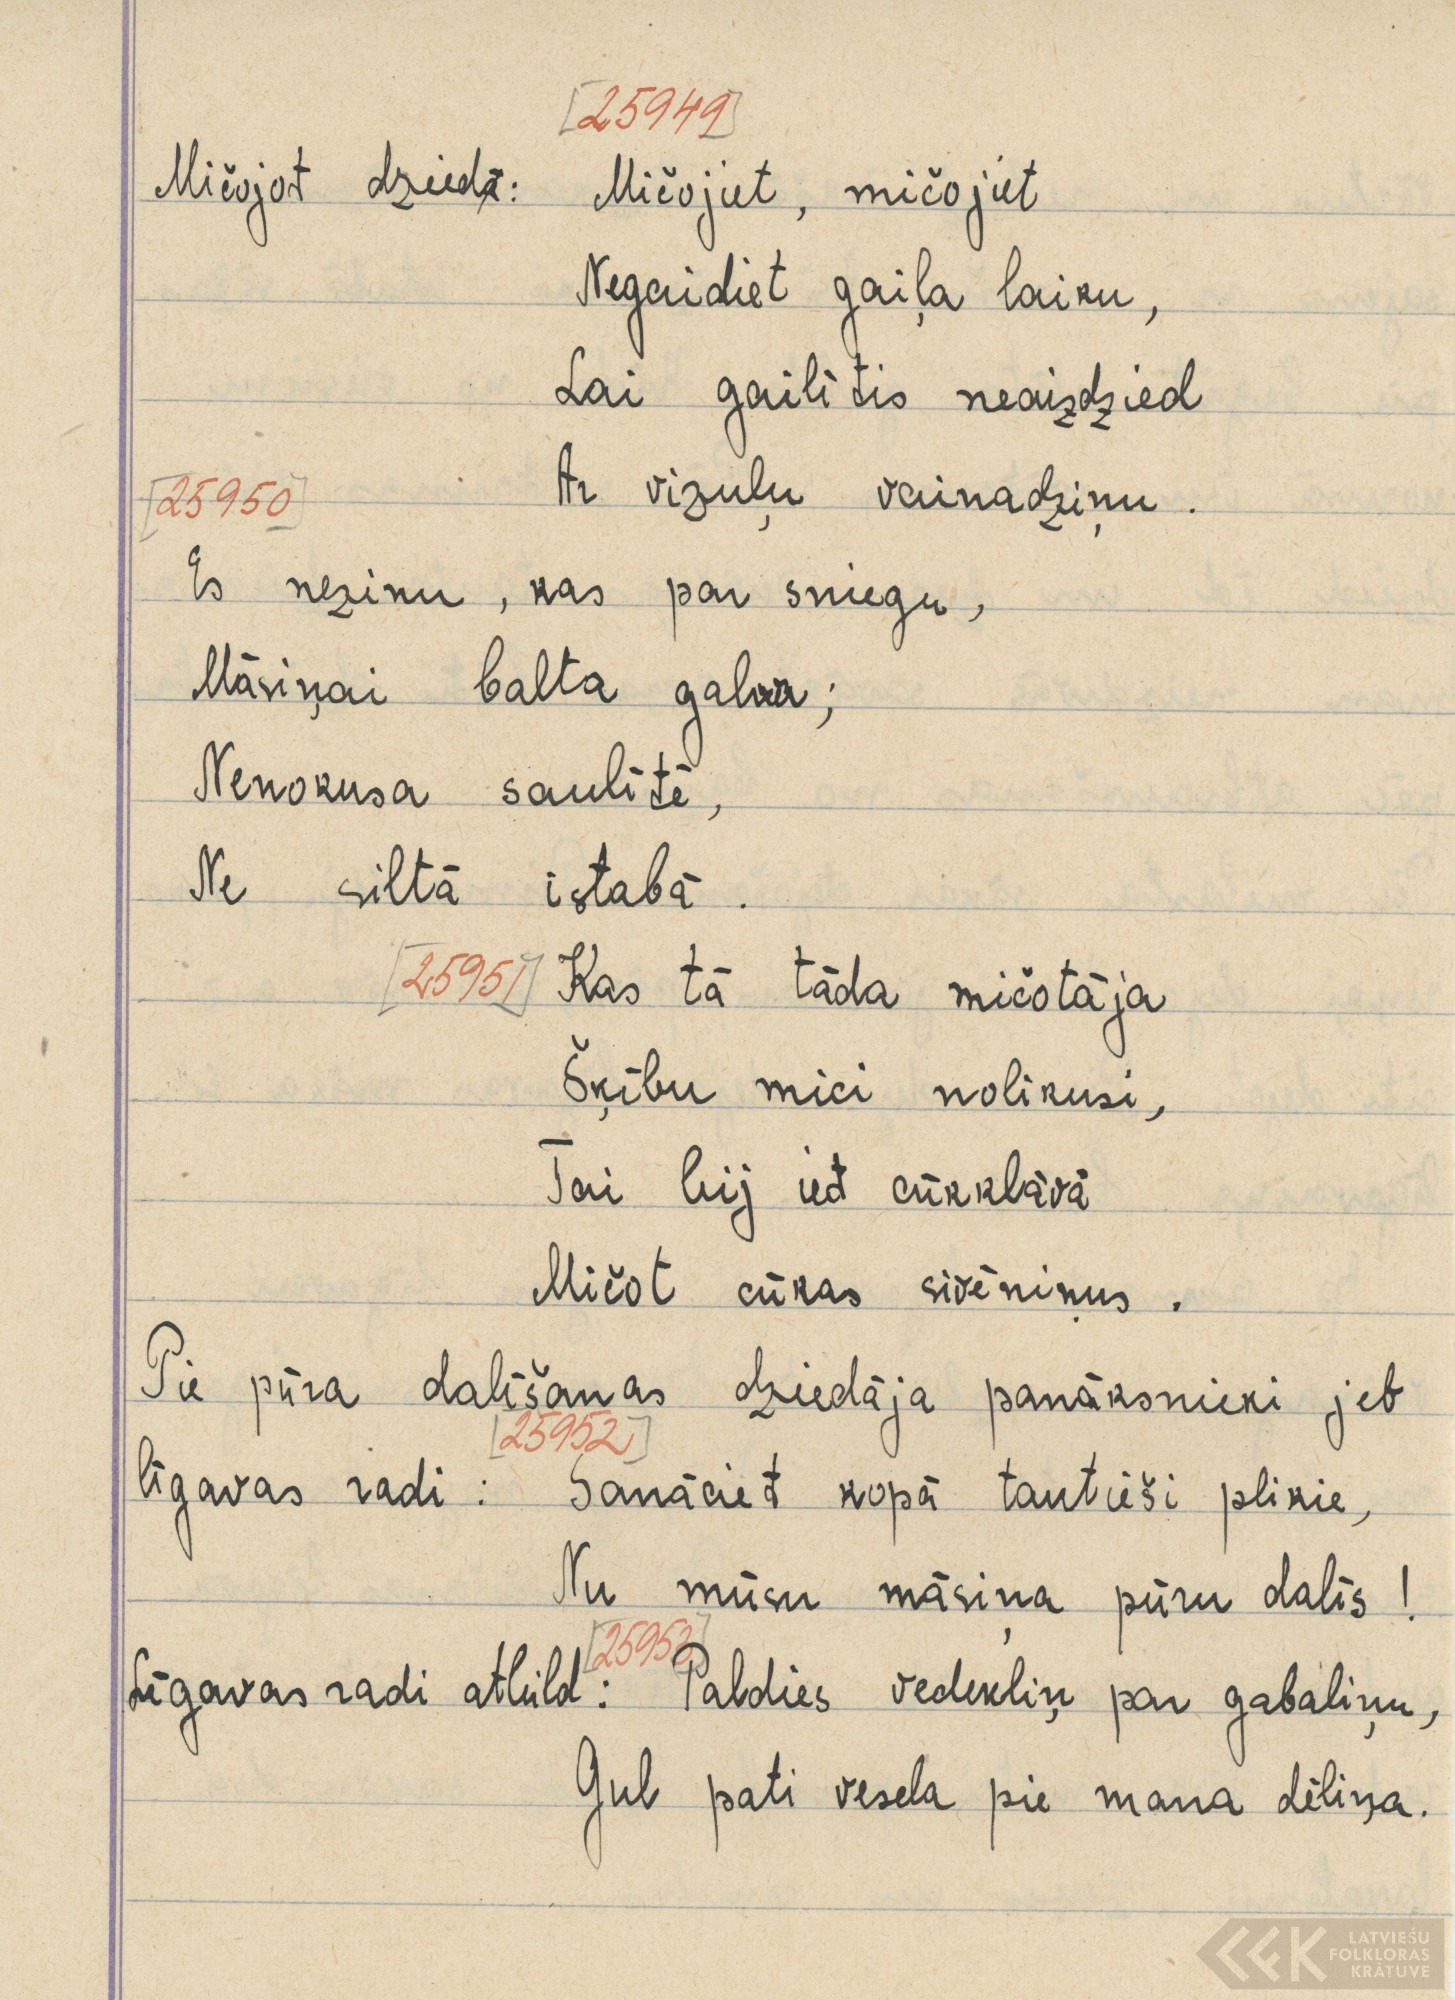 [25949]
Mičojot dzied: Mičojiet, mičojiet
Negaidiet gaiļa laiku,
Lai gailītis neaizdzied
Ar vizuļu vainadziņu.
[25950]
Es nezinu, kas par sniegu,
Māsiņai balta galva;
Nenokusa saulītē,
Ne siltā istabā.
[25951] Kas tā tāda mičotāja
Šķību mici nolikusi,
Tai bij iet cūkklāvā
Mičot cūkas sivēniņus.
Pie pūra dalīšanas dziedāja panāksnieki jeb
[25952]
līgavas radi: Sanāciet kopā tautieši plikie,
Nu mūsu māsiņa pūru dalīs!
[25953]
Līgavas radi atbild: Paldies vedekliņ par gabaliņu,
Gul pati vesela pie mana dēliņa.
LATVIEŠU
FOLKLORAS
KRĀTUVE